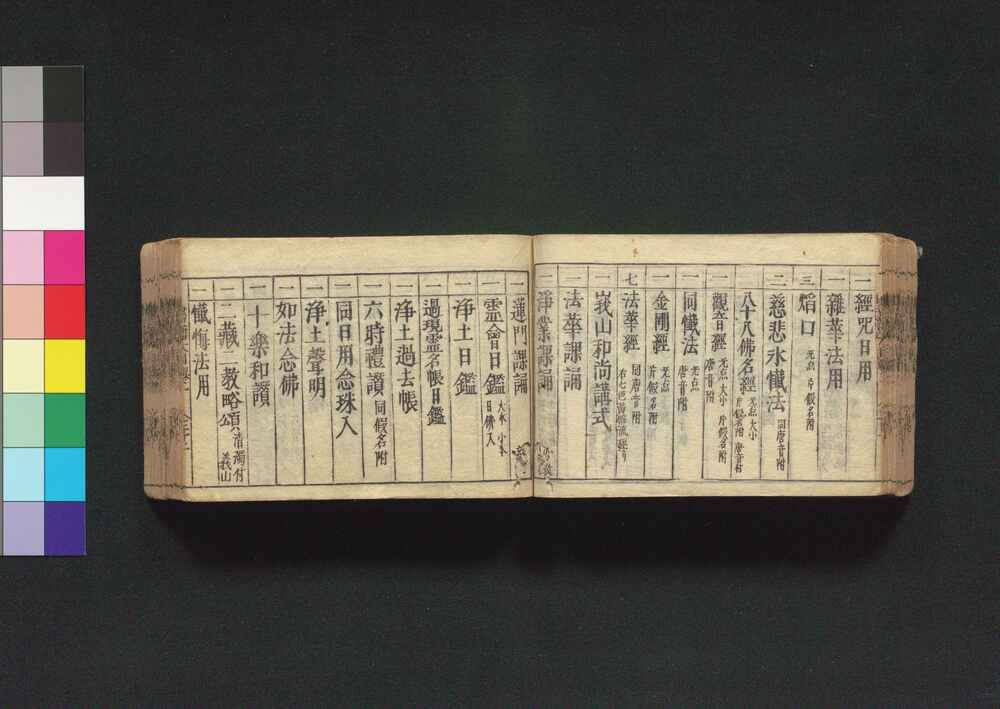 一 經咒日用
一 雜華法用
三 焰口 无点 片假名附
二 慈悲水懺法 同唐音附
八十八佛名經 无点 大小 片假名附 唐音付
一 觀音經 无点 大小 片假名附 唐音附
一 同懺法 无点 唐音附
一 金剛經 无点 片假名附
七 法華經 同唐音附
一 峩山和尚講式
一 法華課誦
一 淨業課誦
一 蓮門課誦
一 霊會日鑑 大本 小本 日佛入
一 淨土日鑑
一 過現霊名帳日鑑
一 淨土過去帳
一 六時禮讃 同假名附
一 同日用念珠入
一 淨土聲明
一 如法念佛
一 十樂和讃
一 二藏二教略頌 清濁付 義山
一 懺悔法用